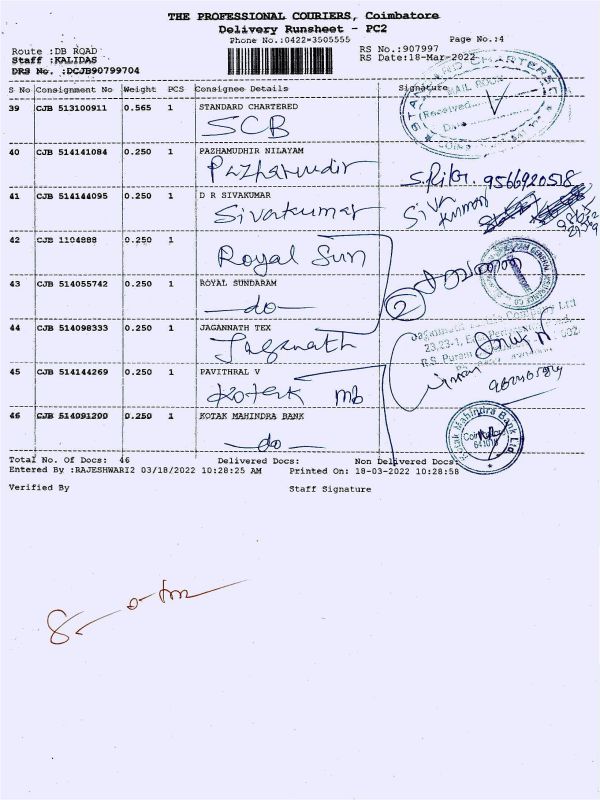 THE PROFESSIONAL COURIERS, Coimbatore
Delivery Runsheet - PC2
Phone No.:0422-3505555 Page No.:4
Route :DB ROAD RS No.:907997
Staff :KALIDAS RS Date:18-Mar-2022
DRS No. :DCJB90799704
S No Consignment No Weight PCS Consignee Details Signature
39 CJB 513100911 0.565 1 STANDARD CHARTERED
SCB
STANDARD CHARTERED
MAIL ROOM
Received
Date
40 CJB 514141084 0.250 1 PAZHAMUDHIR NILAYAM
Pazhamudir
9566920518
41 CJB 514144095 0.250 1 D R SIVAKUMAR
Sivakumar
Siva
kumar
42 CJB 1104888 0.250 1
Royal Sun
43 CJB 514055742 0.250 1 ROYAL SUNDARAM
-do-
2
44 CJB 514098333 0.250 1 JAGANNATH TEX
Jaganath
R.S. Puram
45 CJB 514144269 0.250 1 PAVITHRAL V
Kotak mb
46 CJB 514091200 0.250 1 KOTAK MAHINDRA BANK
-do-
Kotak Mahindra Bank Ltd
Total No. Of Docs: 46 Delivered Docs: Non Delivered Docs:
Entered By :RAJESHWARI2 03/18/2022 10:28:25 AM Printed On: 18-03-2022 10:28:58
Verified By Staff Signature